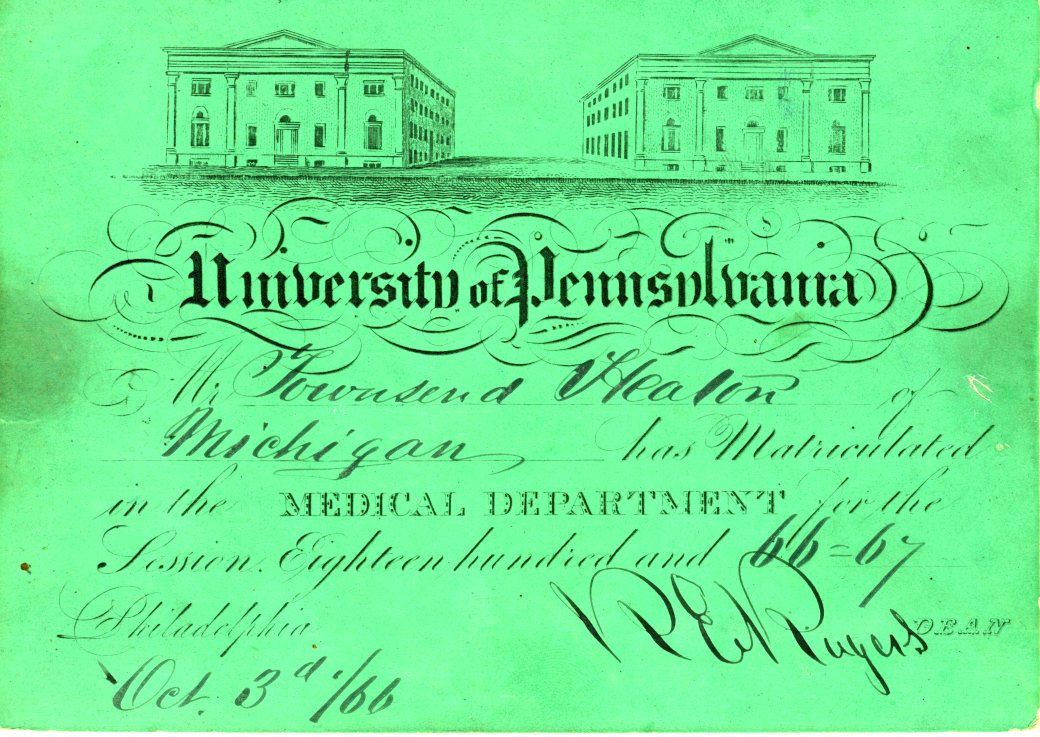 University of Pennsylvania
Mr. Townsend Heaton of
Michigan has Matriculated
in the MEDICAL DEPARTMENT for the
Session. Eighteen hundred and 66=67
Philadelphia
R E Rogers DEAN
Oct. 3d /66